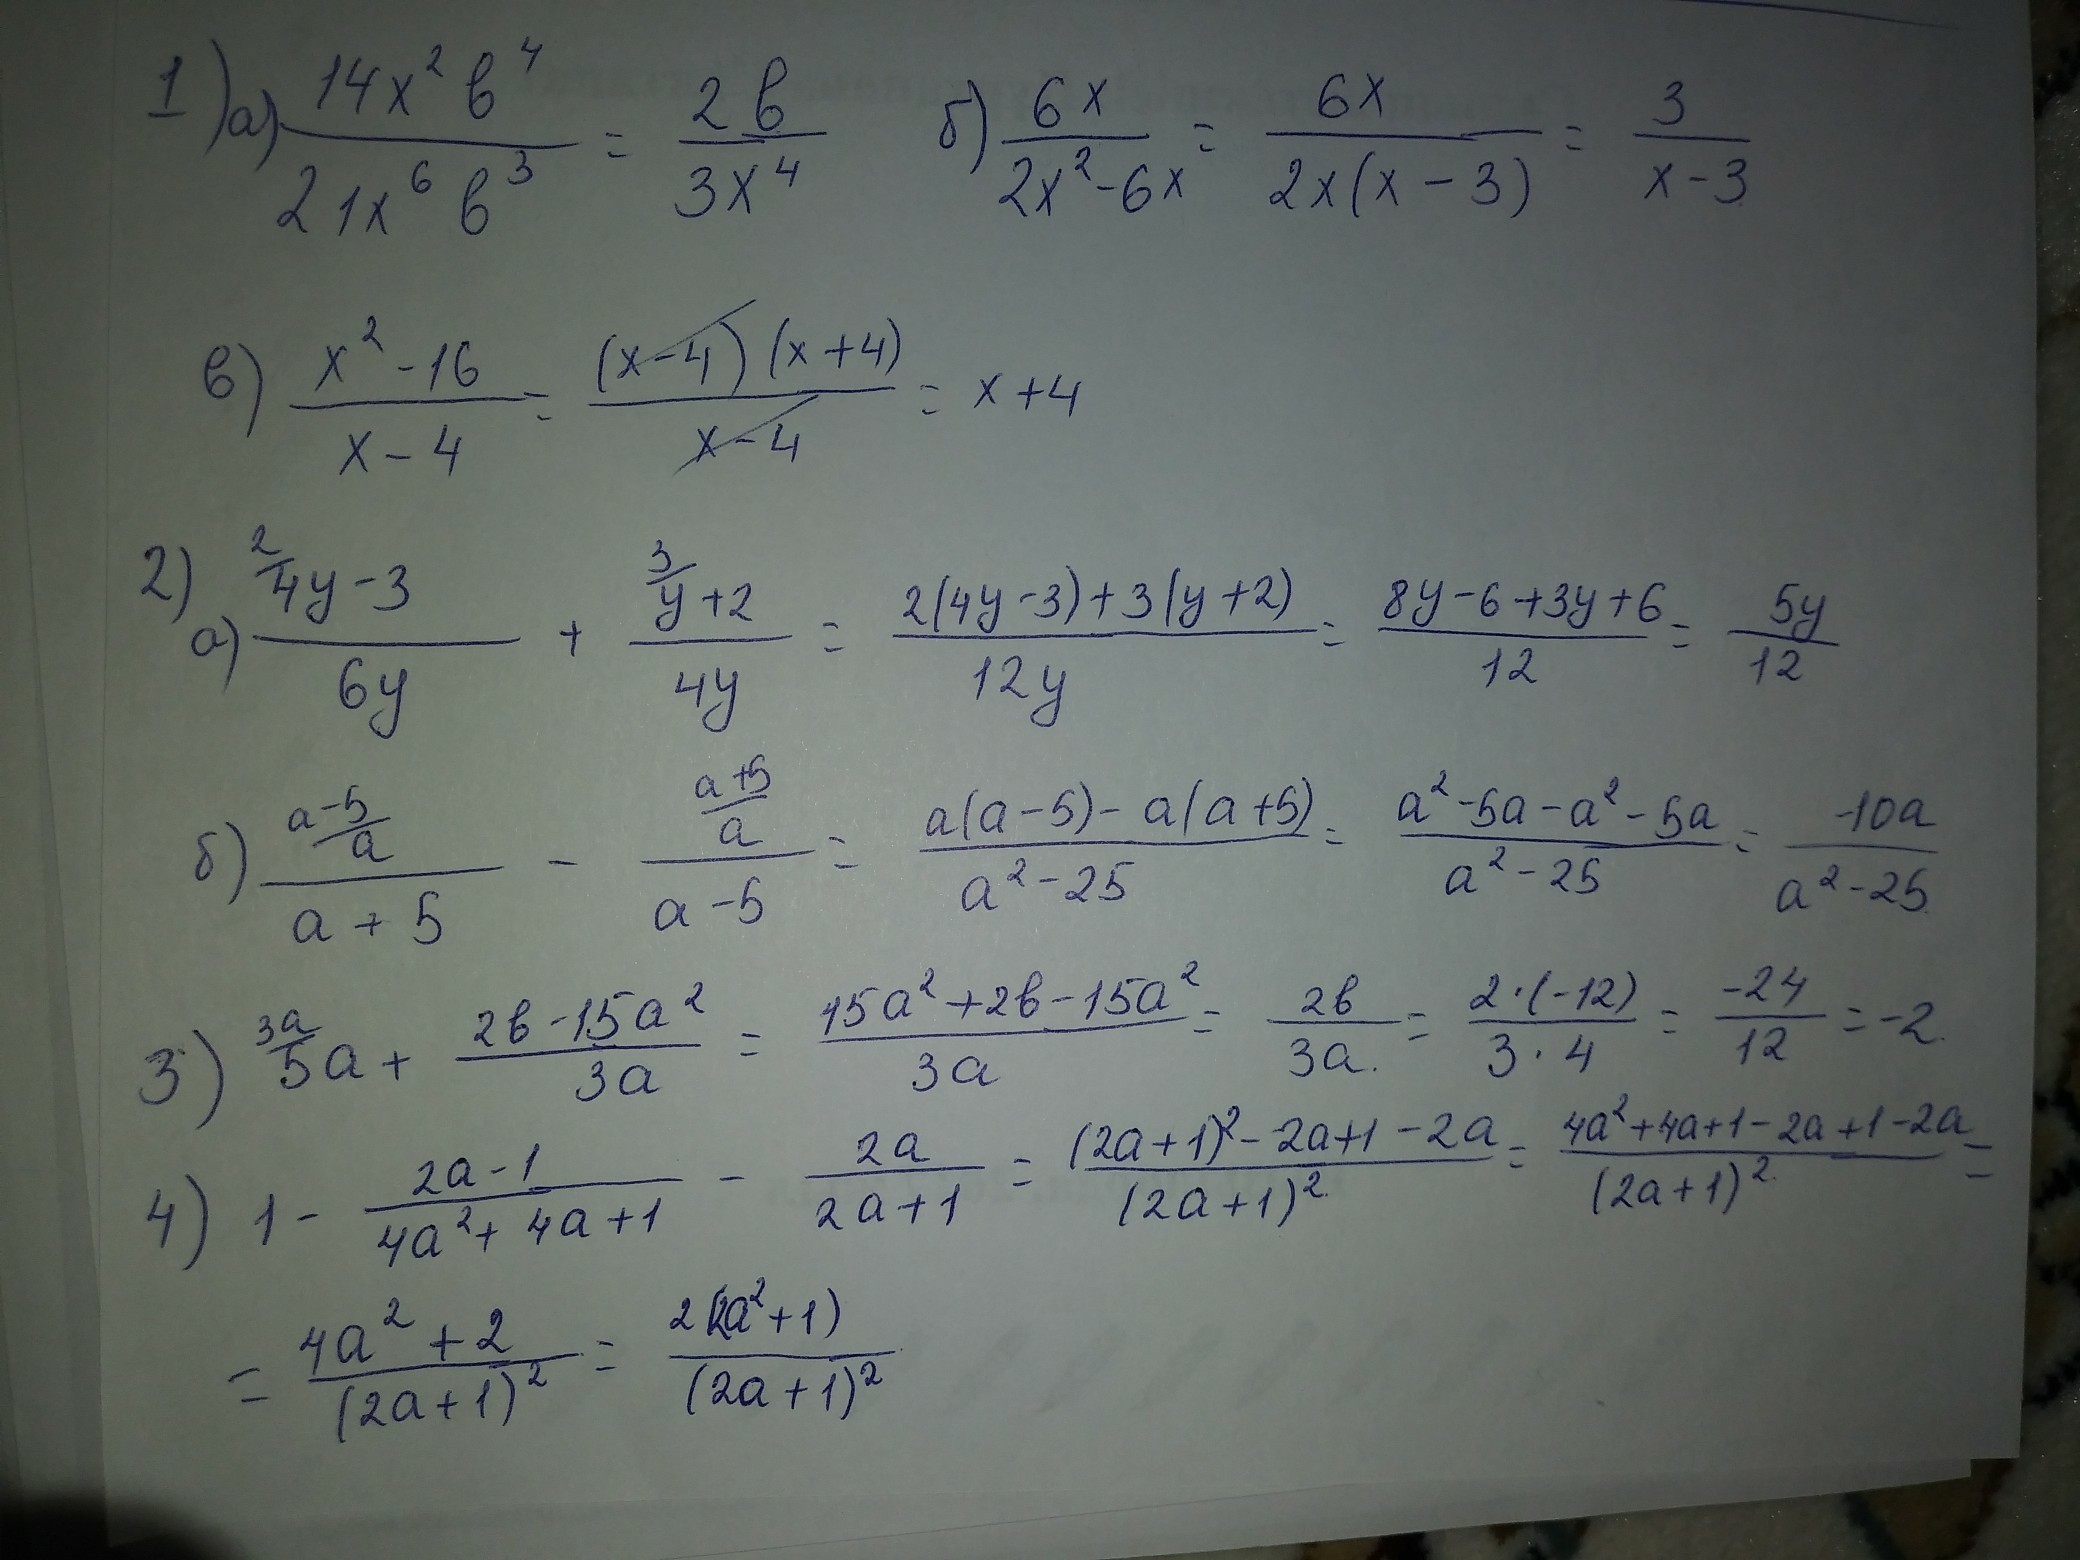 1) а) 14x² b⁴ / 21x⁶ b³ = 2b / 3x⁴ б) 6x / 2x²-6x = 6x / 2x(x-3) = 3 / x-3
в) x²-16 / x-4 = (x-4)(x+4) / x-4 = x+4
2) а) ²/4y-3 / 6y + ³/y+2 / 4y = 2(4y-3)+3(y+2) / 12y = 8y-6+3y+6 / 12 = 5y / 12
б) a-5/a / a+5 - a+5/a / a-5 = a(a-5)-a(a+5) / a²-25 = a²-5a-a²-5a / a²-25 = -10a / a²-25
3) 3a/5a + 2b-15a² / 3a = 15a²+2b-15a² / 3a = 2b / 3a. = 2·(-12) / 3·4 = -24 / 12 = -2.
4) 1 - 2a-1 / 4a²+4a+1 - 2a / 2a+1 = (2a+1)²-2a+1-2a / (2a+1)² = 4a²+4a+1-2a+1-2a / (2a+1)² =
= 4a²+2 / (2a+1)² = 2(2a²+1) / (2a+1)²